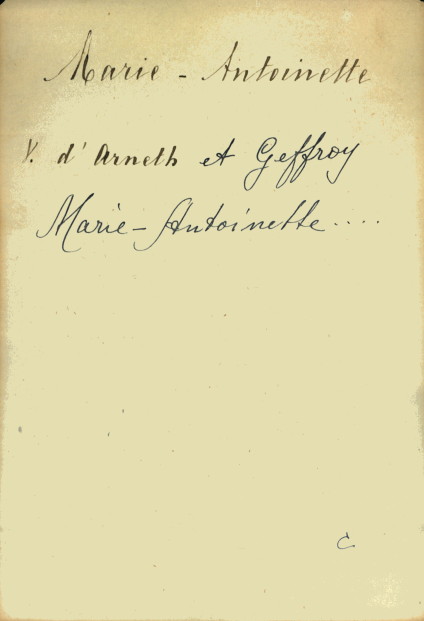 Marie - Antoinette
V. d'Arneth et Geffroy
Marie-Antoinette....
c